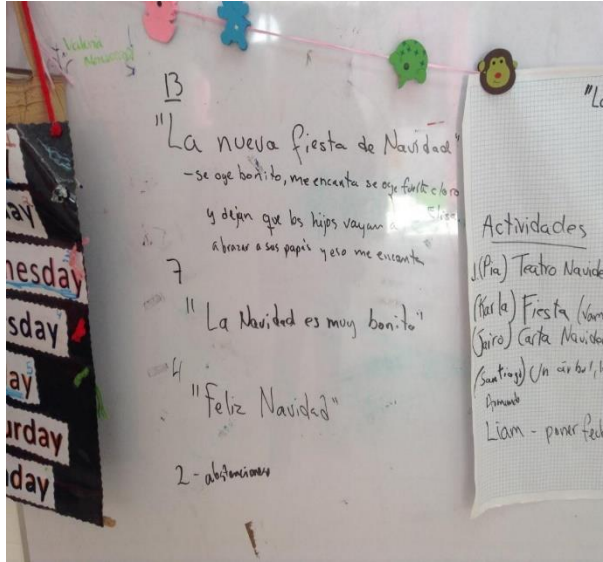 Valeria
13
"La nueva fiesta de Navidad"
-se oye bonito, me encanta se oye fuerte claro
y dejan que los hijos vayan a
abrazar a sus papás y eso me encanta
7
"La Navidad es muy bonito"
4
"Feliz Navidad"
2 - abstenciones
ay
nesday
sday
ay
urday
day
"La
Actividades
1.(Pia) Teatro Navide
(Karla) Fiesta (vam
(Jairo) Carta Navida
(Santiago) Un árbol,
Liam - poner fech